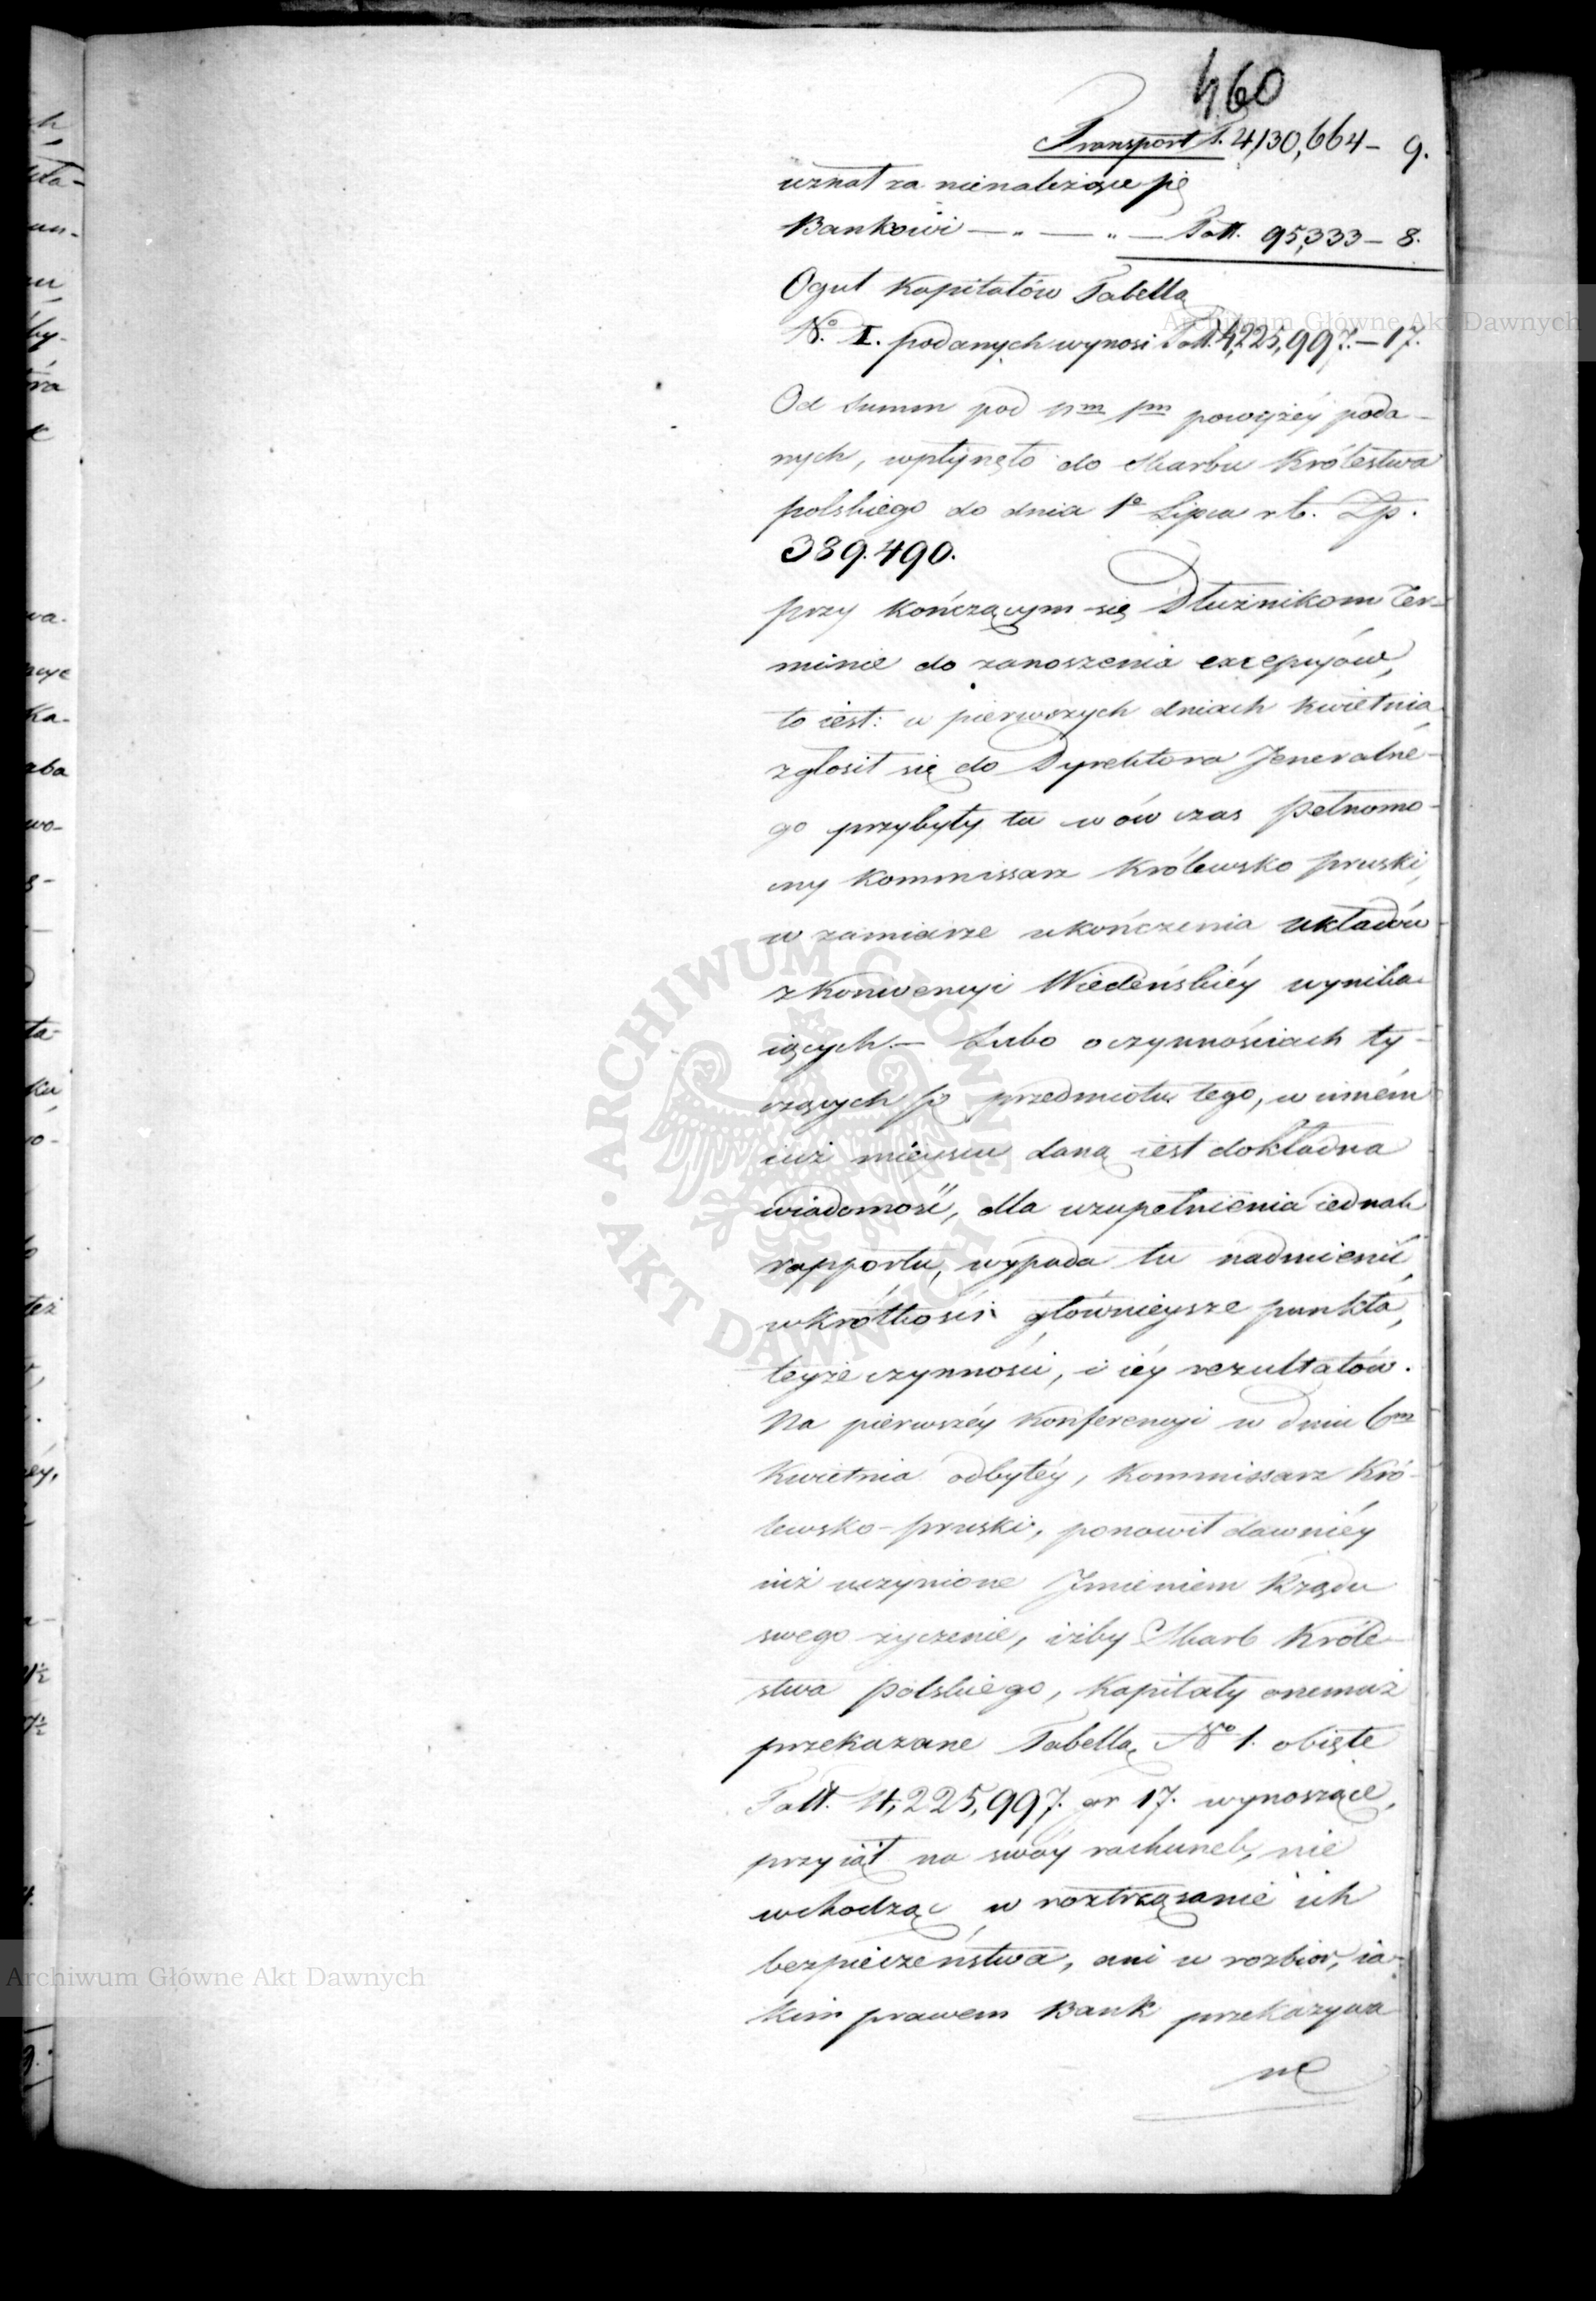 460
Transport T. 4,130,664 – 9.
uznał za nienależące się
Bankowi — „ — „ — Tall. 95,333 – 8.
Oguł Kapitałów Tabellą
No. I. podanych wynosi Tall. 4,225,997. – 17.
Od Summ pod nm 1m powyżéy poda-
nych, wpłynęło do Skarbu Królestwa
polskiego do dnia 1o Lipca r.b. Zp.
389.490.
przy kończącym się Dłużnikom Ter-
minie do zanoszenia excepcyów,
to iest: w pierwszych dniach kwietnia
zgłosił się do Dyrektora Jeneralne-
go przybyły tu w ów czas Pełnomo-
cny Kommissarz Królewsko pruski,
w zamiarze ukończenia układów
z Konwencyi Wiedeńskiéy wynika-
iących. – Lubo o czynnościach ty-
czących się przedmiotu tego, w inném
iuż mieyscu daną iest dokładna
wiadomość, dla uzupełnienia iednak
rapportu, wypada tu nadmienić
w krótkości główniéysze punkta,
teyże czynności, i iéy rezultatów.
Na pierwszéy Konferencyi w dniu 6m
Kwietnia odbytéy, Kommissarz Kró-
lewsko-pruski, ponowił dawniéy
iuż uczynione Imieniem Rządu
swego życzenie, iżby Skarb Króle-
stwa Polskiego, Kapitały onemuż
przekazane Tabellą No 1. obięte
Tall. 4,225,997. gr 17. wynoszące,
przyiął na swóy rachunek, nie
wchodząc w roztrząsanie ich
bezpieczeństwa, ani w rozbior, ia-
kim prawem Bank przekazywa
ne
Archiwum Główne Akt Dawnych
ARCHIWUM GŁÓWNE AKT DAWNYCH
Archiwum Główne Akt Dawnych